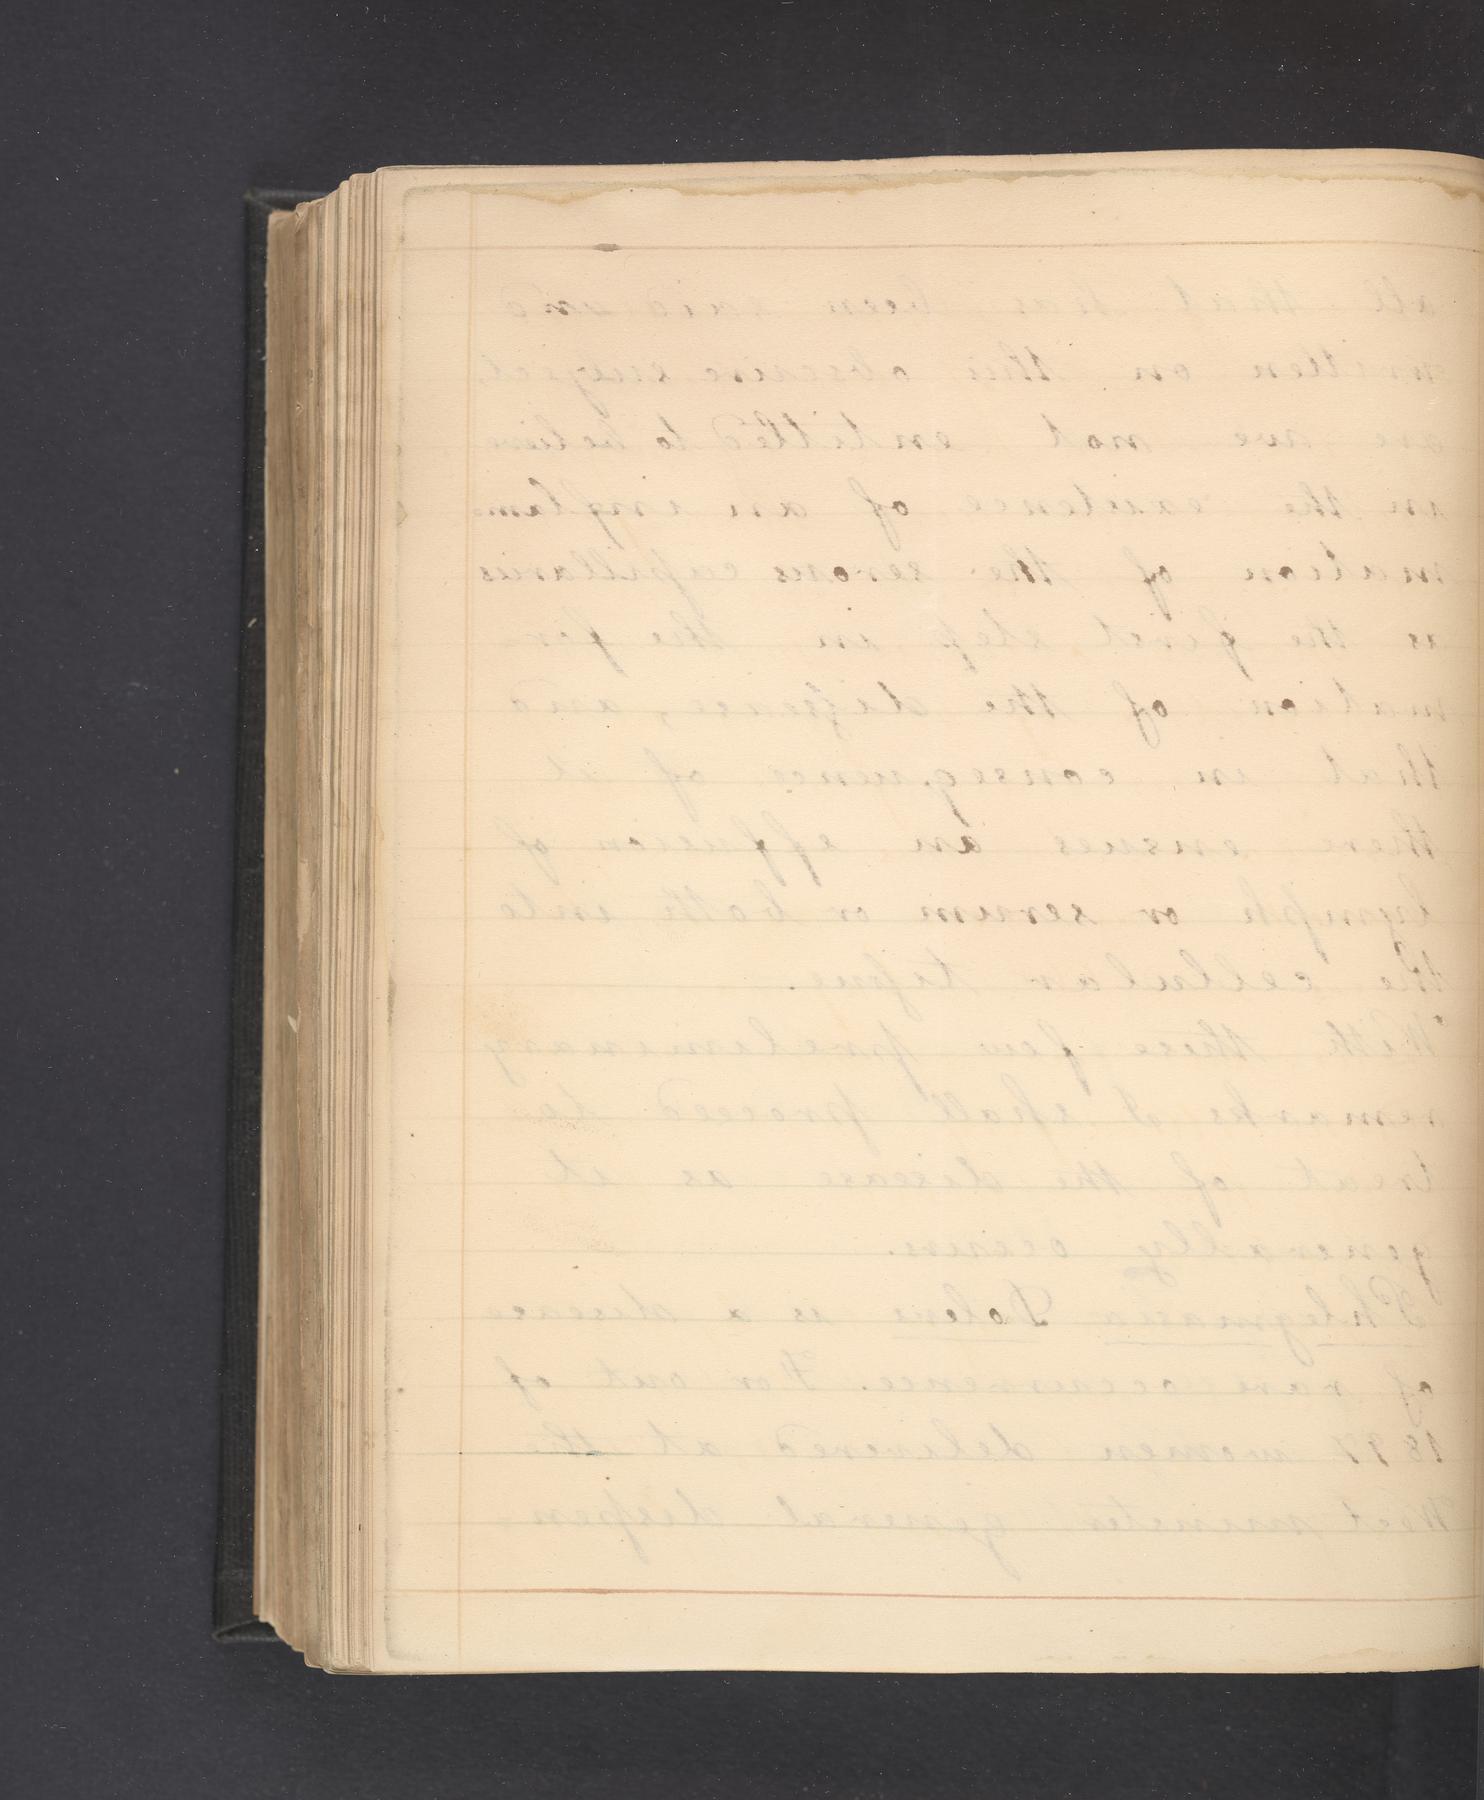 all that has been said and
written on this obscure subject,
are we not entitled to believe
in the existence of an inflam-
mation of the serous capillaries
as the first step in the for-
mation of the disease, and
that in consequence of it
there ensues an effusion of
lymph or serum or both into
the cellular tissue.
With these few preliminary
remarks I shall proceed to
treat of the disease as it
generally occurs.
Phlegmasia Dolens is a disease
of rare occurrence. For out of
1897 women delivered at the
Westminster general dispen-